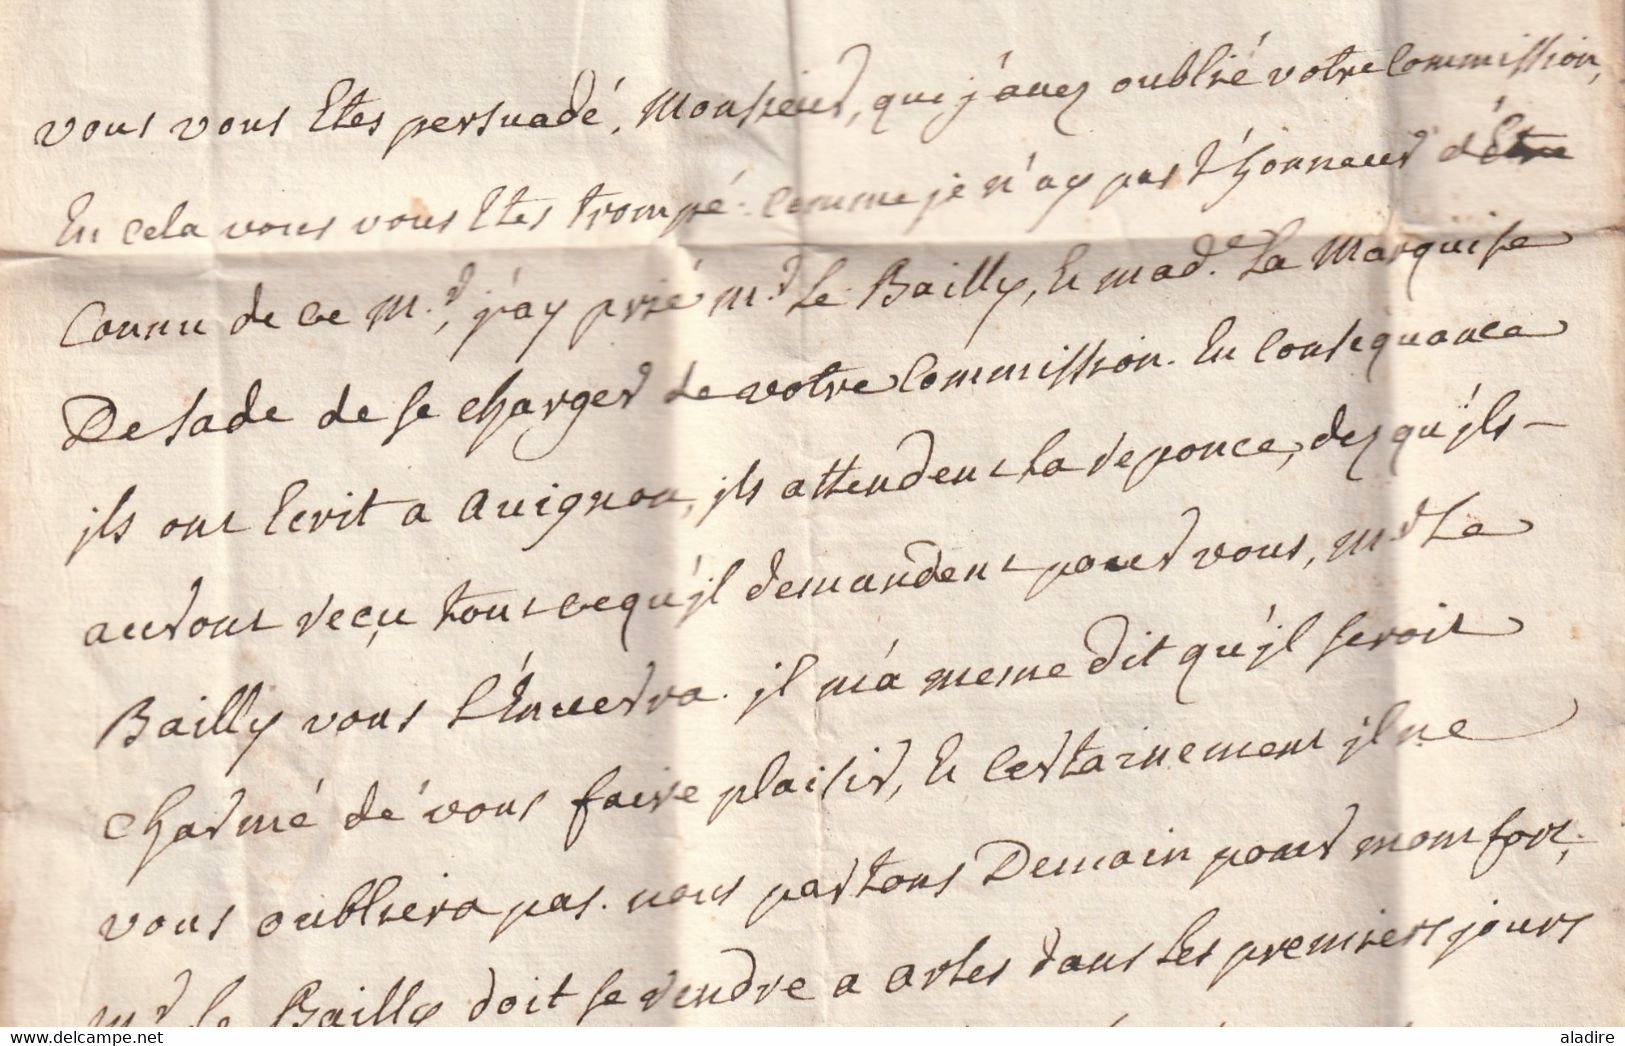 vous vous Etes persuadé, Monsieur, que j'avez oublié votre Commission,
En cela vous vous Etes trompé. Comme je n'ay pas l'honneur d'Être
Connu de ce Mr., j'ay prié Mr. Le Bailly, Et made. La Marquise
De sade de se charger de votre Commission. En Consequance
ils ont Ecrit a avignon, ils attendent la reponce, dez qu'ils
auront reçu tout ce qu'il demandent pour vous, Mr Le
Bailly vous l'Enverra. il m'a meme dit qu'il seroit
charmé dé vous faire plaisir, Et Certainement il ne
vous oubliera pas. nous partons Demain pour Montfort,
Mr Le Bailly doit se rendre a arles dans les premiers jours
aladire